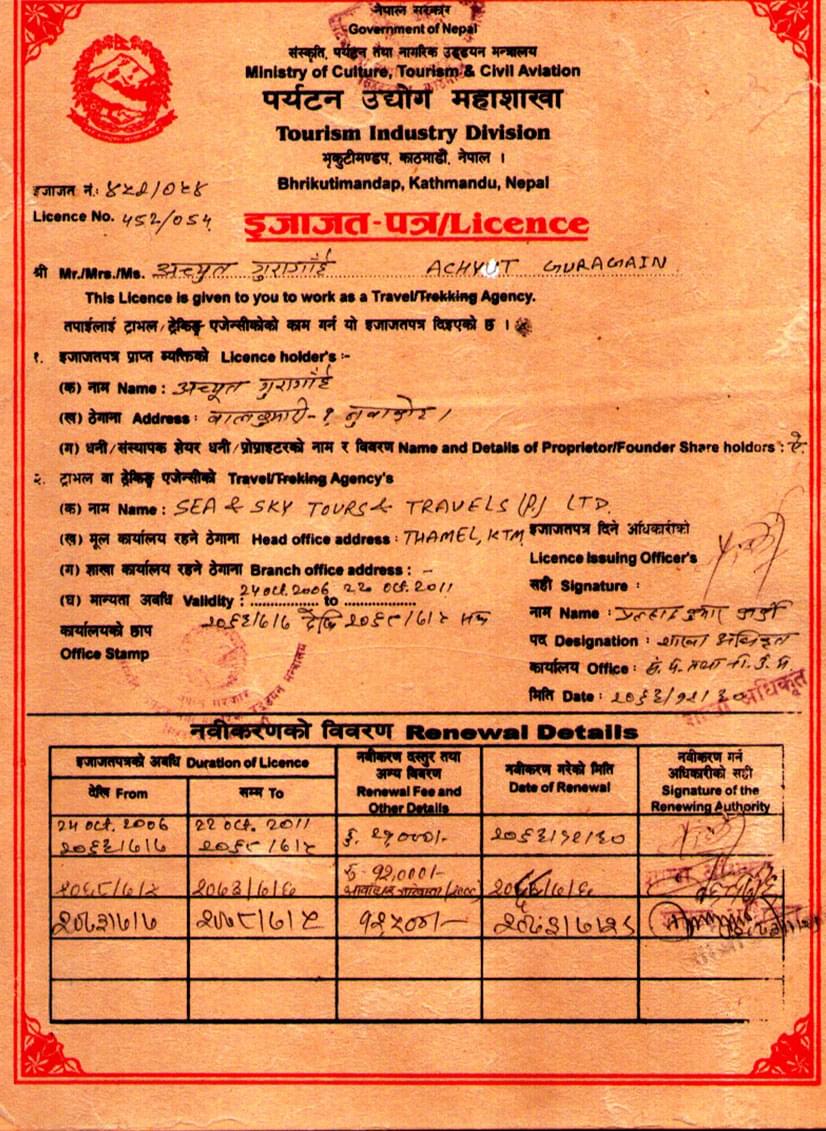 नेपाल सरकार
Government of Nepal
संस्कृति, पर्यटन तथा नागरिक उड्डयन मन्त्रालय
Ministry of Culture, Tourism & Civil Aviation
पर्यटन उद्योग महाशाखा
Tourism Industry Division
भृकुटीमण्डप, काठमाडौं, नेपाल ।
Bhrikutimandap, Kathmandu, Nepal
इजाजत नं.: ४५२/०५४
Licence No. 452/054
इजाजत-पत्र/Licence
श्री Mr./Mrs./Ms. अच्युत गुरागाँई ACHYUT GURAGAIN
This Licence is given to you to work as a Travel/Trekking Agency.
तपाईलाई ट्राभल/ट्रेकिङ्ग एजेन्सीकोको काम गर्न यो इजाजतपत्र दिइएको छ ।
१. इजाजतपत्र प्राप्त व्यक्तिको Licence holder's :-
(क) नाम Name : अच्यूत गुरागाँई
(ख) ठेगाना Address : बालकुमारी-१, नुवाकोट ।
(ग) धनी/संस्थापक सेयर धनी/प्रोप्राइटरको नाम र विवरण Name and Details of Proprietor/Founder Share holdors : ऐ.
२. ट्राभल वा ट्रेकिङ्ग एजेन्सीको Travel/Treking Agency's
(क) नाम Name : SEA & SKY TOURS & TRAVELS (P.) LTD.
(ख) मूल कार्यालय रहने ठेगाना Head office address : THAMEL, KTM
(ग) शाखा कार्यालय रहने ठेगाना Branch office address : -
(घ) मान्यता अवधि Validity : 24 Oct. 2006 to 22 Oct. 2011
२०६३/७/७ देखि २०६८/७/५ सम्म
कार्यालयको छाप
Office Stamp
इजाजतपत्र दिने अधिकारीको
Licence Issuing Officer's
सही Signature :
नाम Name :
पद Designation : शाखा अधिकृत
कार्यालय Office : सं. प. तथा ना. उ. म.
मिति Date : २०६३/१२/३०
शाखा अधिकृत
नवीकरणको विवरण Renewal Details
इजाजतपत्रको अवधि Duration of Licence
देखि From
सम्म To
नवीकरण दस्तुर तथा अन्य विवरण Renewal Fee and Other Details
नवीकरण गरेको मिति Date of Renewal
नवीकरण गर्न अधिकारीको सही Signature of the Renewing Authority
24 Oct. 2006 22 Oct. 2011
२०६३/७/७ २०६८/७/५ २०६३/१२/३०
२०६८/७/५ २०७३/७/६ रु. १२,०००/-
२०७३/७/७ २०७८/७/५ १२५००/-